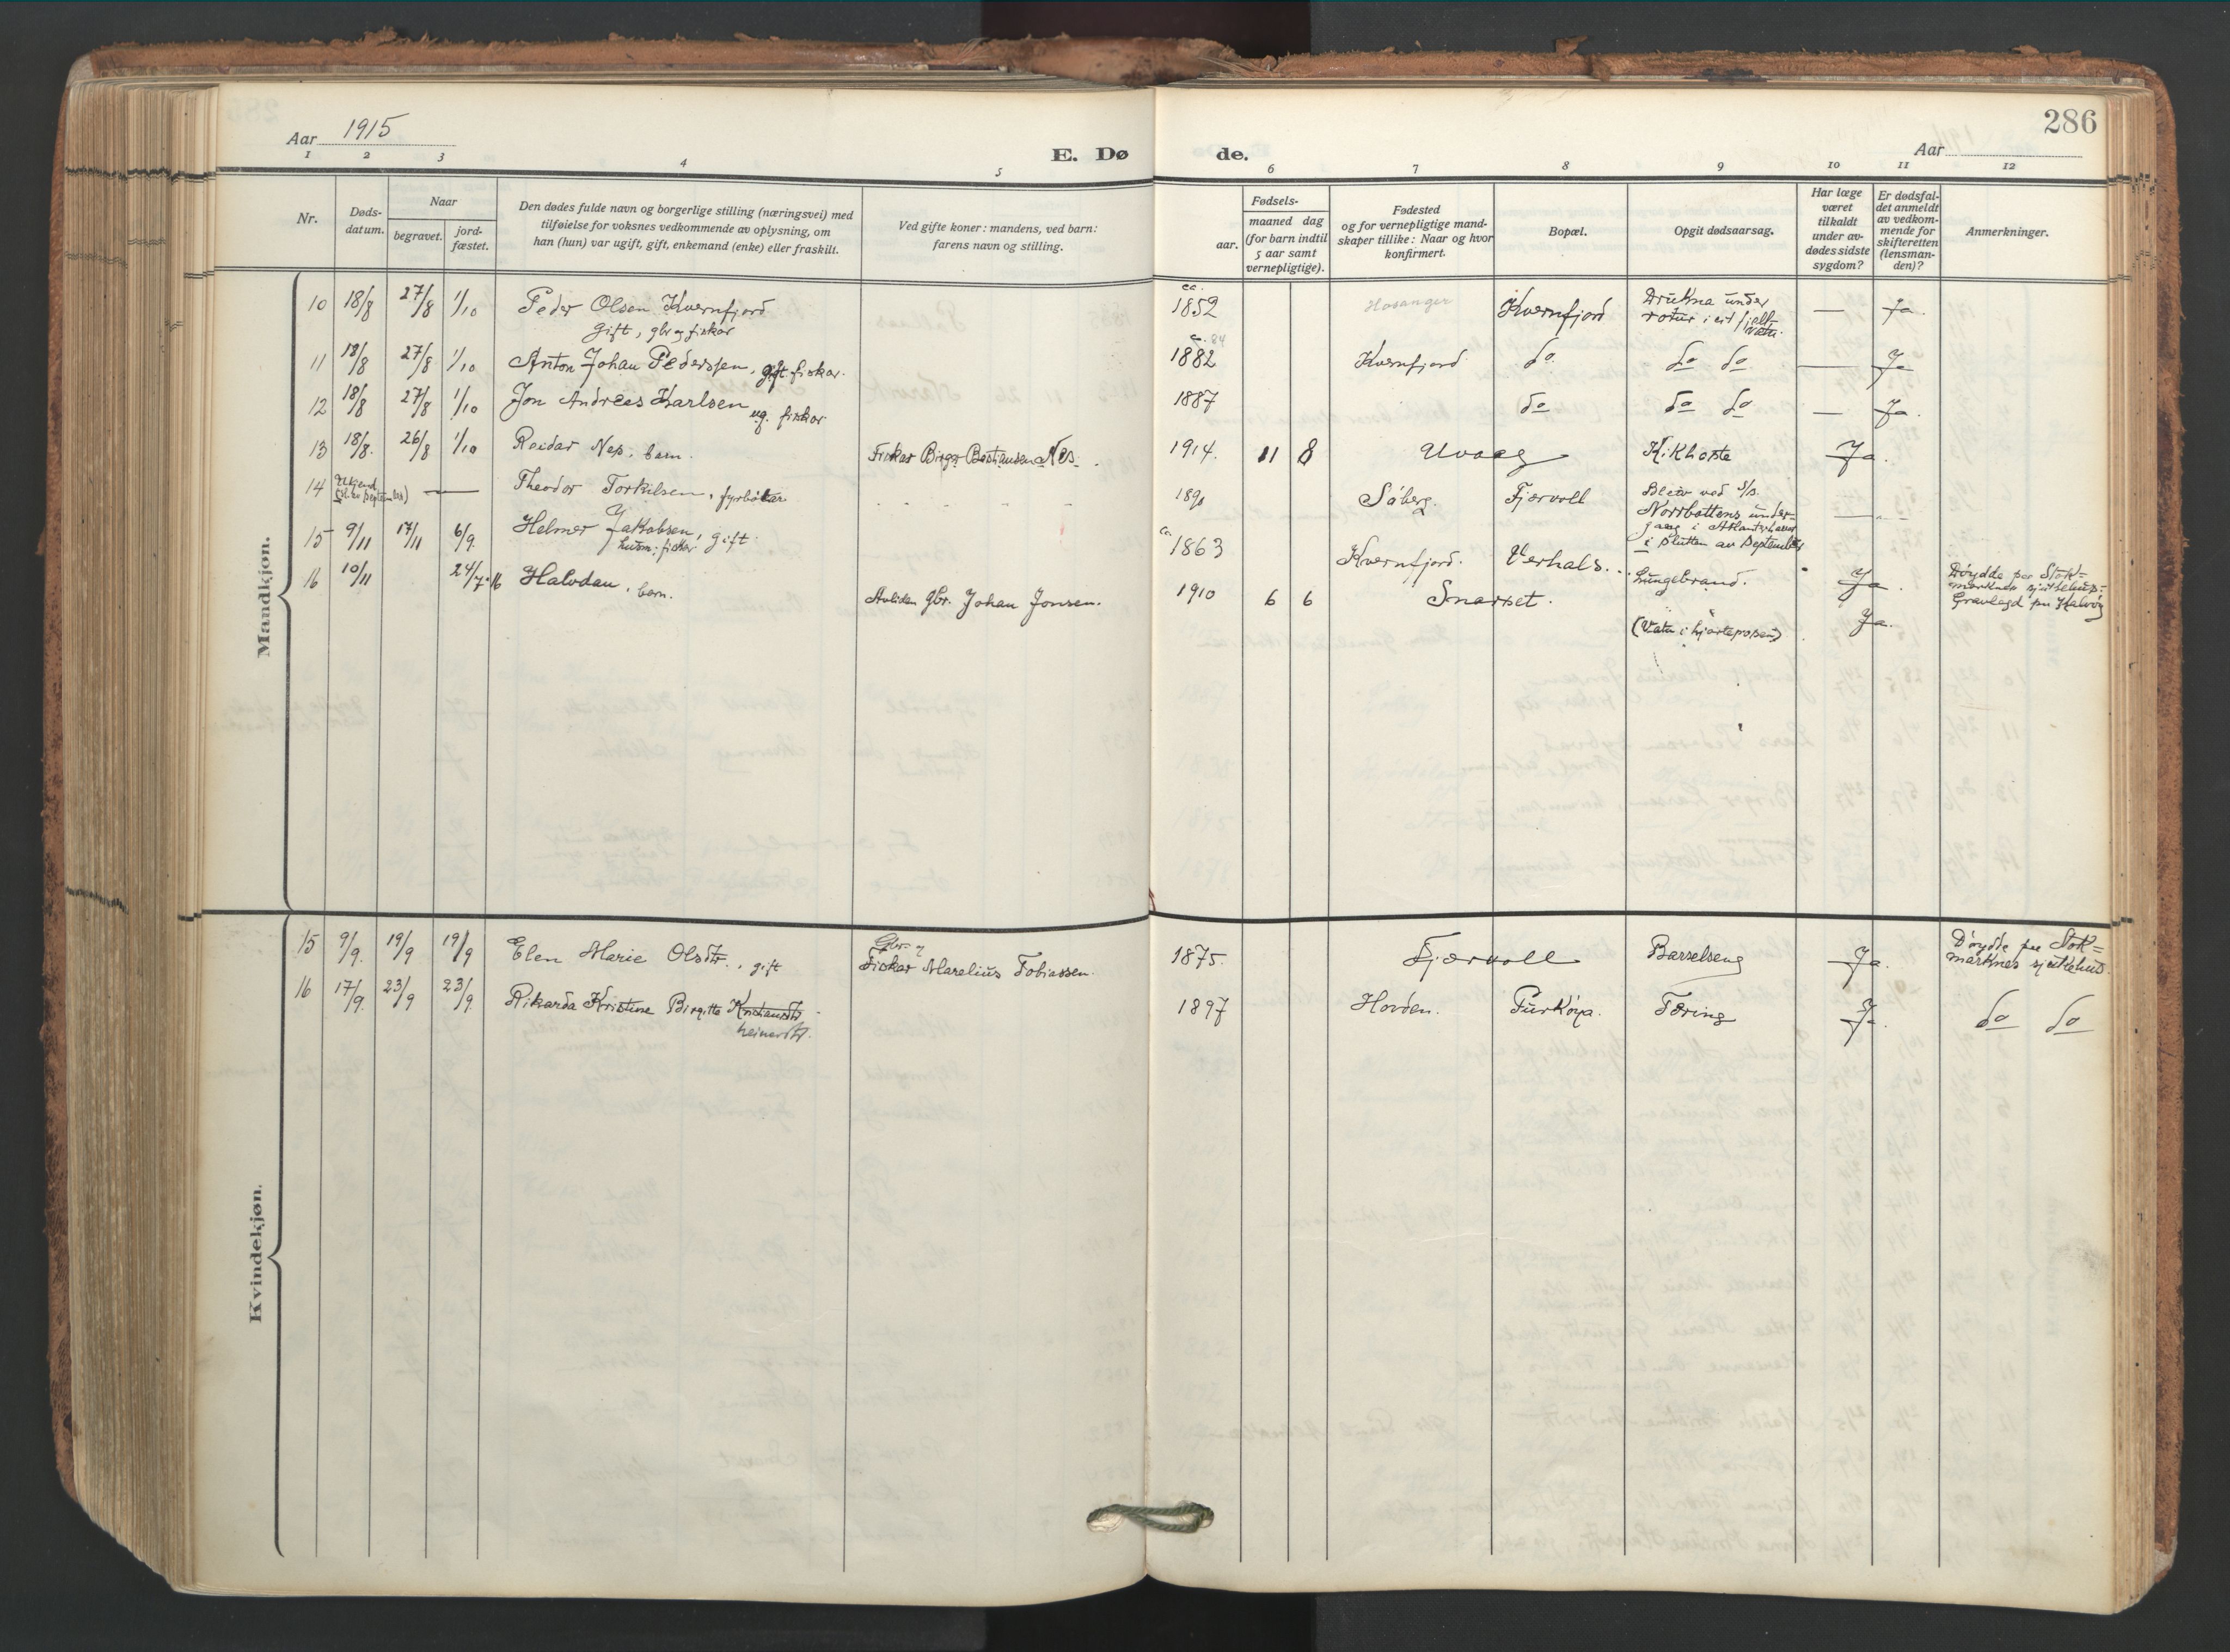 286
Aar 1915
Aar
E. Dø de.
1 2 3 4 5 6 7 8 9 10 11 12
Nr.
Døds-
datum.
Naar
begravet.
jord-
fæstet.
Den dødes fulde navn og borgerlige stilling (næringsvei) med
tilføielse for voksnes vedkommende av oplysning, om
han (hun) var ugift, gift, enkemand (enke) eller fraskilt.
Ved gifte koner: mandens, ved barn:
farens navn og stilling.
Fødsels-
aar.
maaned dag
(for barn indtil
5 aar samt
vernepligtige).
Fødested
og for vernepligtige mand-
skaper tillike: Naar og hvor
konfirmert.
Bopæl.
Opgit dødsaarsag.
Har læge
været
tilkaldt
under av-
dødes sidste
sygdom?
Er dødsfal-
det anmeldt
av vedkom-
mende for
skifteretten
(lensman-
den)?
Anmerkninger.
Mandkjøn.
10 18/8 27/8 1/10 Peder Olsen Kvernfjord
gift, gbr og fiskar
ca. 1852 Hosanger Kvernfjord Drukna under
rotur i eit fjell-
vatn. — Ja.
11 18/8 27/8 1/10 Anton Johan Pederssen, gift fiskar.
1882 Kvernfjord do do do — Ja
12 18/8 27/8 1/10 Jon Andreas Karlsen ug. fiskar
1887 do do do — Ja.
13 18/8. 26/8 1/10 Reidar Nes, barn. Fiskar Birger Bastiansen Nes.
1914. 11 8 Uvaag Kikhoste Ja.
14 Ukjend
(Slutten september) — Theodor Torkilsen, fyrbøtar
1890 Søberg. Fjærvoll Bleiv ved S/S.
Norrbottens under-
gang i Atlanterhavet
i slutten av september —
15 9/11 17/11 6/9. Helmer Jakobsen, gift
husm. fiskar
ca. 1863 Kvernfjord. Verhals. Lungebrand. Ja. Døydde paa Stok=
marknes sjukehus.
Gravlagd paa Halvøy
16 10/11 24/7-16 Halvdan, barn. Avliden gbr. Johan Jonsen.
1910 6 6 Snarset. (Vatn i hjarteposen) Ja.
Kvindekjøn.
15 9/9. 19/9 19/9 Elen Marie Olsdtr., gift Gbr. og
Fiskar Marelius Tobiassen.
1875. Fjærvoll Barselseng Ja. Døydde paa Stok=
marknes sjukehus.
16 17/9. 23/9 23/9. Rikarda Kristine Birgitte Kristiansdtr
heinesdtr.
1897 Hovden. Purkøya. Tæring Ja. do do